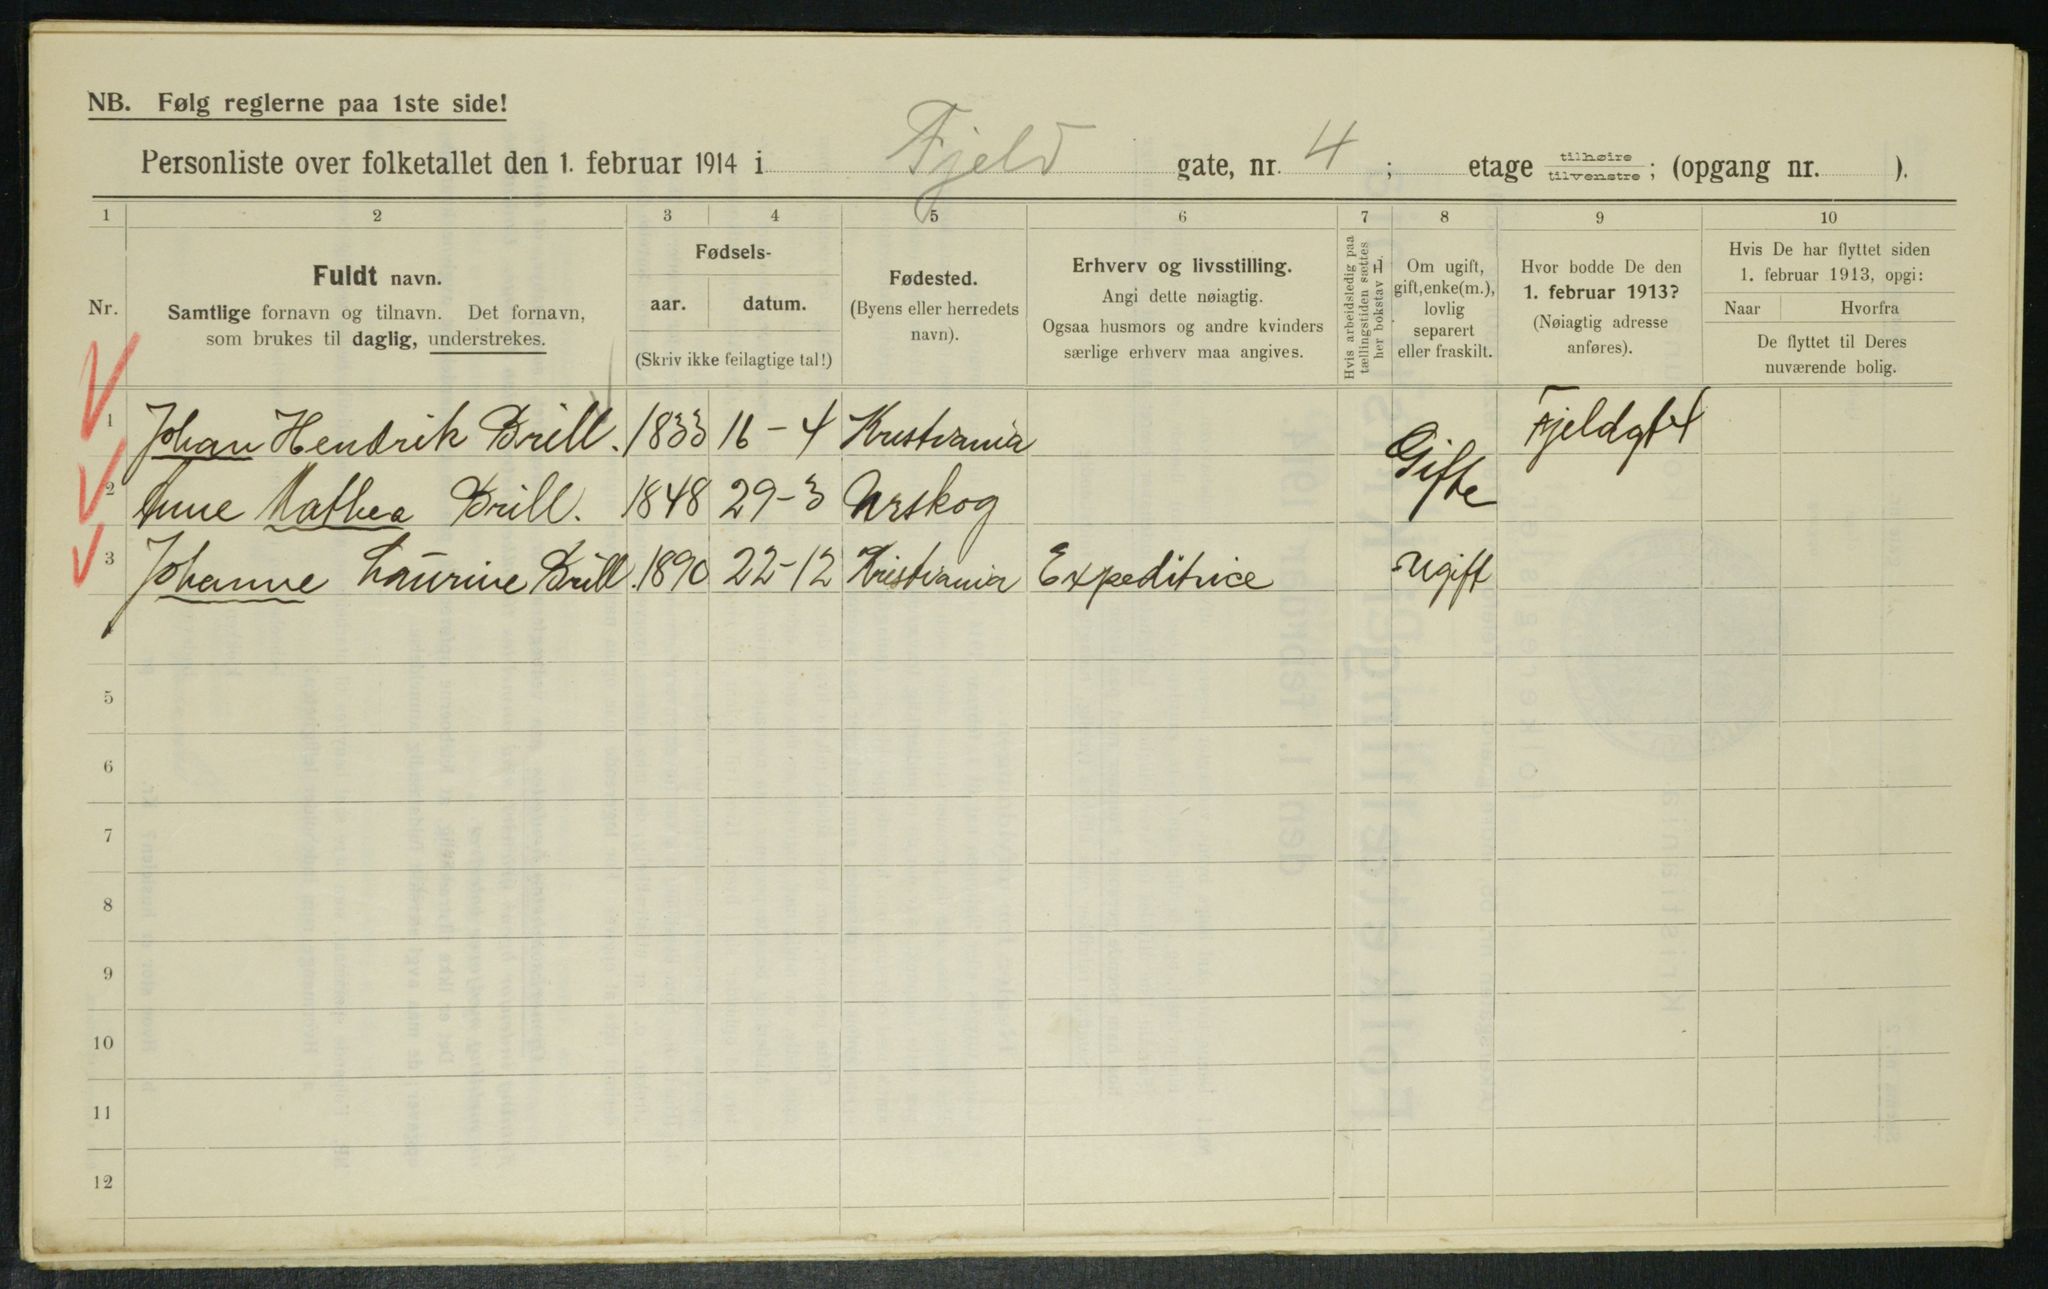 NB. Følg reglerne paa 1ste side!
Personliste over folketallet den 1. februar 1914 i Fjeld gate, nr. 4 ; etage tilhøire tilvenstre ; (opgang nr. ).
1 2 3 4 5 6 7 8 9 10
Nr.
Fuldt navn.
Samtlige fornavn og tilnavn. Det fornavn,
som brukes til daglig, understrekes.
Fødsels-
aar. datum.
(Skriv ikke feilagtige tal!)
Fødested.
(Byens eller herredets
navn).
Erhverv og livsstilling.
Angi dette nøiagtig.
Ogsaa husmors og andre kvinders
særlige erhverv maa angives.
Hvis arbeidsledig paa
tællingstiden sættes
her bokstav L
Om ugift,
gift, enke(m.),
lovlig
separert
eller fraskilt.
Hvor bodde De den
1. februar 1913?
(Nøiagtig adresse
anføres).
Hvis De har flyttet siden
1. februar 1913, opgi:
Naar Hvorfra
De flyttet til Deres
nuværende bolig.
1 Johan Hendrik Brill. 1833 16-4 Kristiania Fjeldgt 4
2 Anne Mathea Brill. 1848 29-3 Urskog Gifte
3 Johanne Laurine Brill. 1890 22-12 Kristiania Expeditrice Ugift
5
6
7
8
9
10
11
12